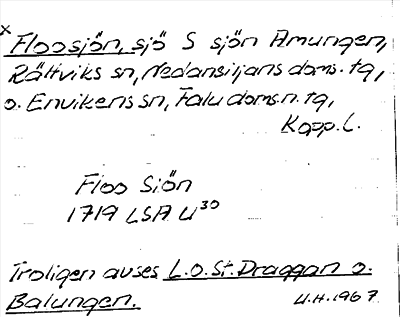 x
Floosjön, sjö S sjön Amungen,
Rättviks sn, Nedansiljans doms. tg,
o. Envikens sn, Falu doms.n. tg,
Kopp. l.
Floo Siön
1719 LSA U30
Troligen avses L. o. St. Draggan o.
Balungen.
U.H. 1967